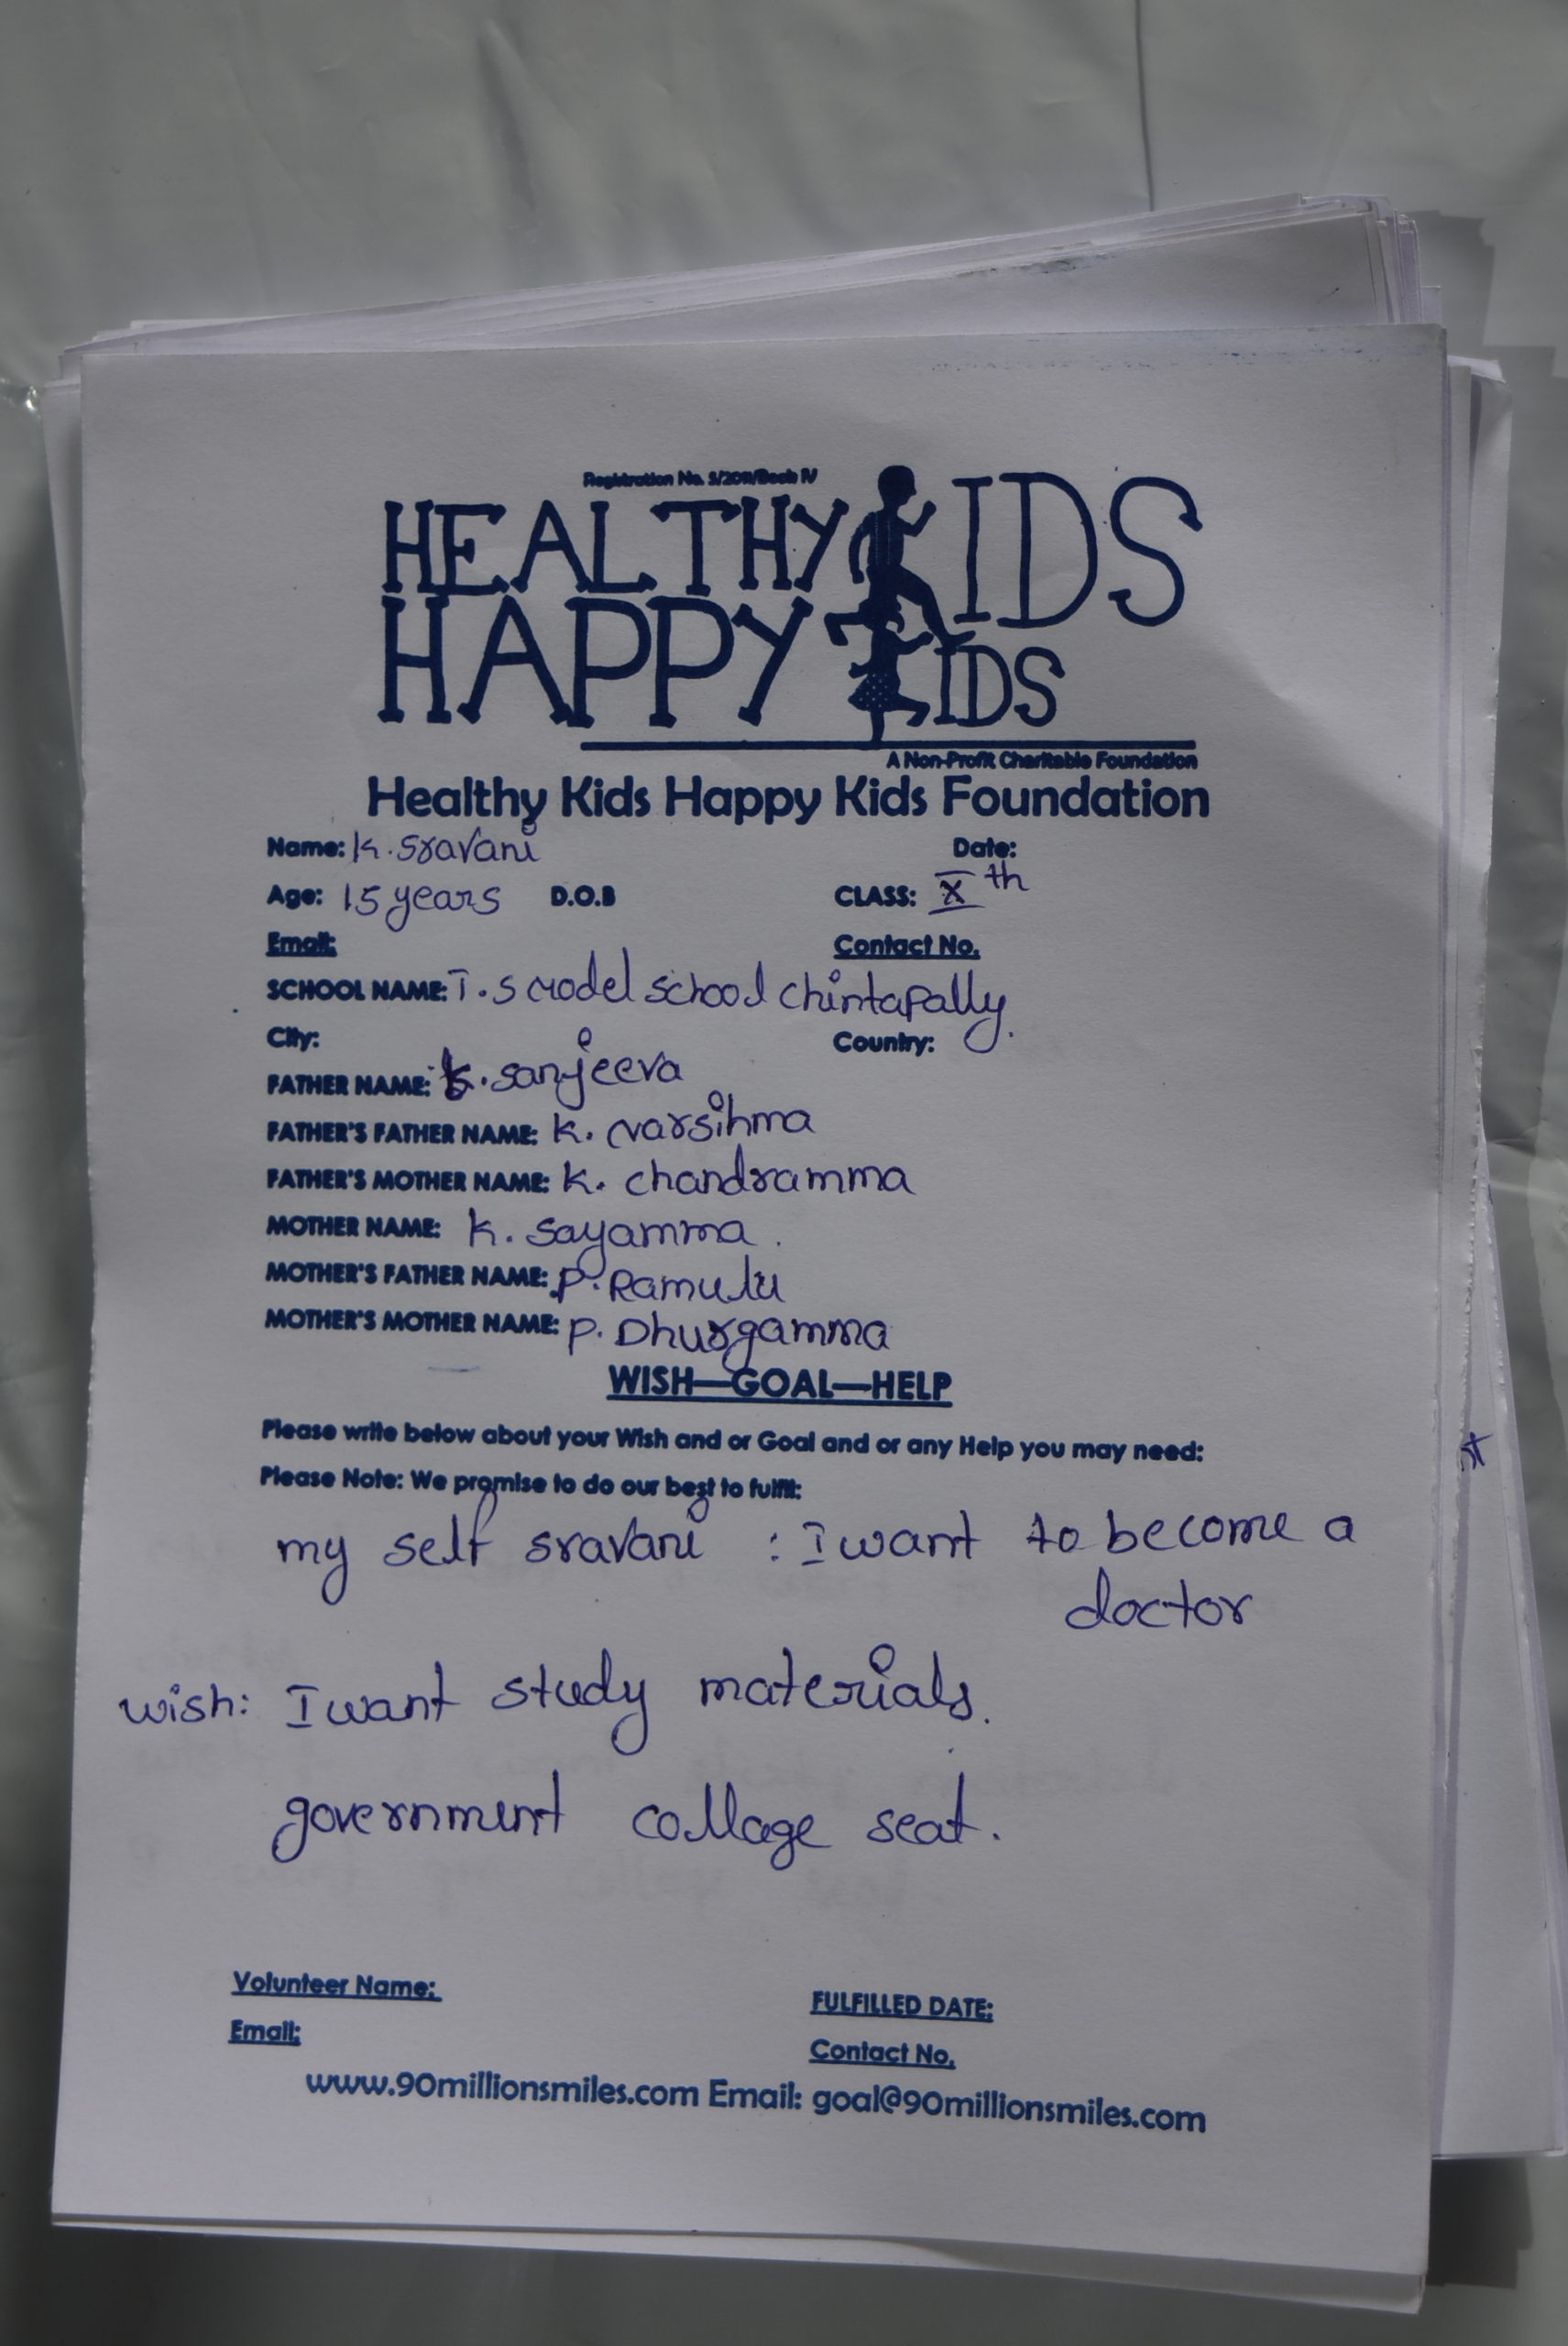 Registration No. 5/2011/Book IV
HEALTHY KIDS
HAPPY KIDS
A Non-Profit Charitable Foundation
Healthy Kids Happy Kids Foundation
Name: K. Sravani Date:
Age: 15 years D.O.B CLASS: X th
Email: Contact No.
SCHOOL NAME: T.S model school chintapally.
City: Country:
FATHER NAME: K. sanjeeva
FATHER'S FATHER NAME: K. narsihma
FATHER'S MOTHER NAME: K. chandramma
MOTHER NAME: K. Sayamma.
MOTHER'S FATHER NAME: P. Ramulu
MOTHER'S MOTHER NAME: P. Dhurgamma
WISH—GOAL—HELP
Please write below about your Wish and or Goal and or any Help you may need:
Please Note: We promise to do our best to fulfil:
my self sravani : I want to become a
doctor
wish: I want study materials.
government collage seat.
Volunteer Name: FULFILLED DATE:
Email: Contact No.
www.90millionsmiles.com Email: goal@90millionsmiles.com